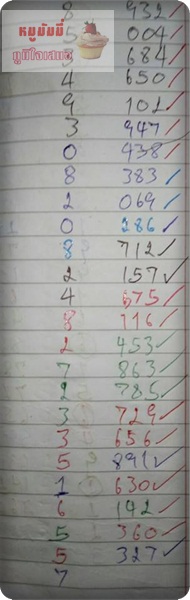 8 932
5 004
หมูมัมมี่
684
มูมีโอเสถวี
4 650
9 102
3 947
0 438
8 383
2 069
0 286
8 712
2 157
4 675
8 116
2 453
7 863
2 785
3 729
3 656
5 891
1 630
6 142
5 360
5 327
7